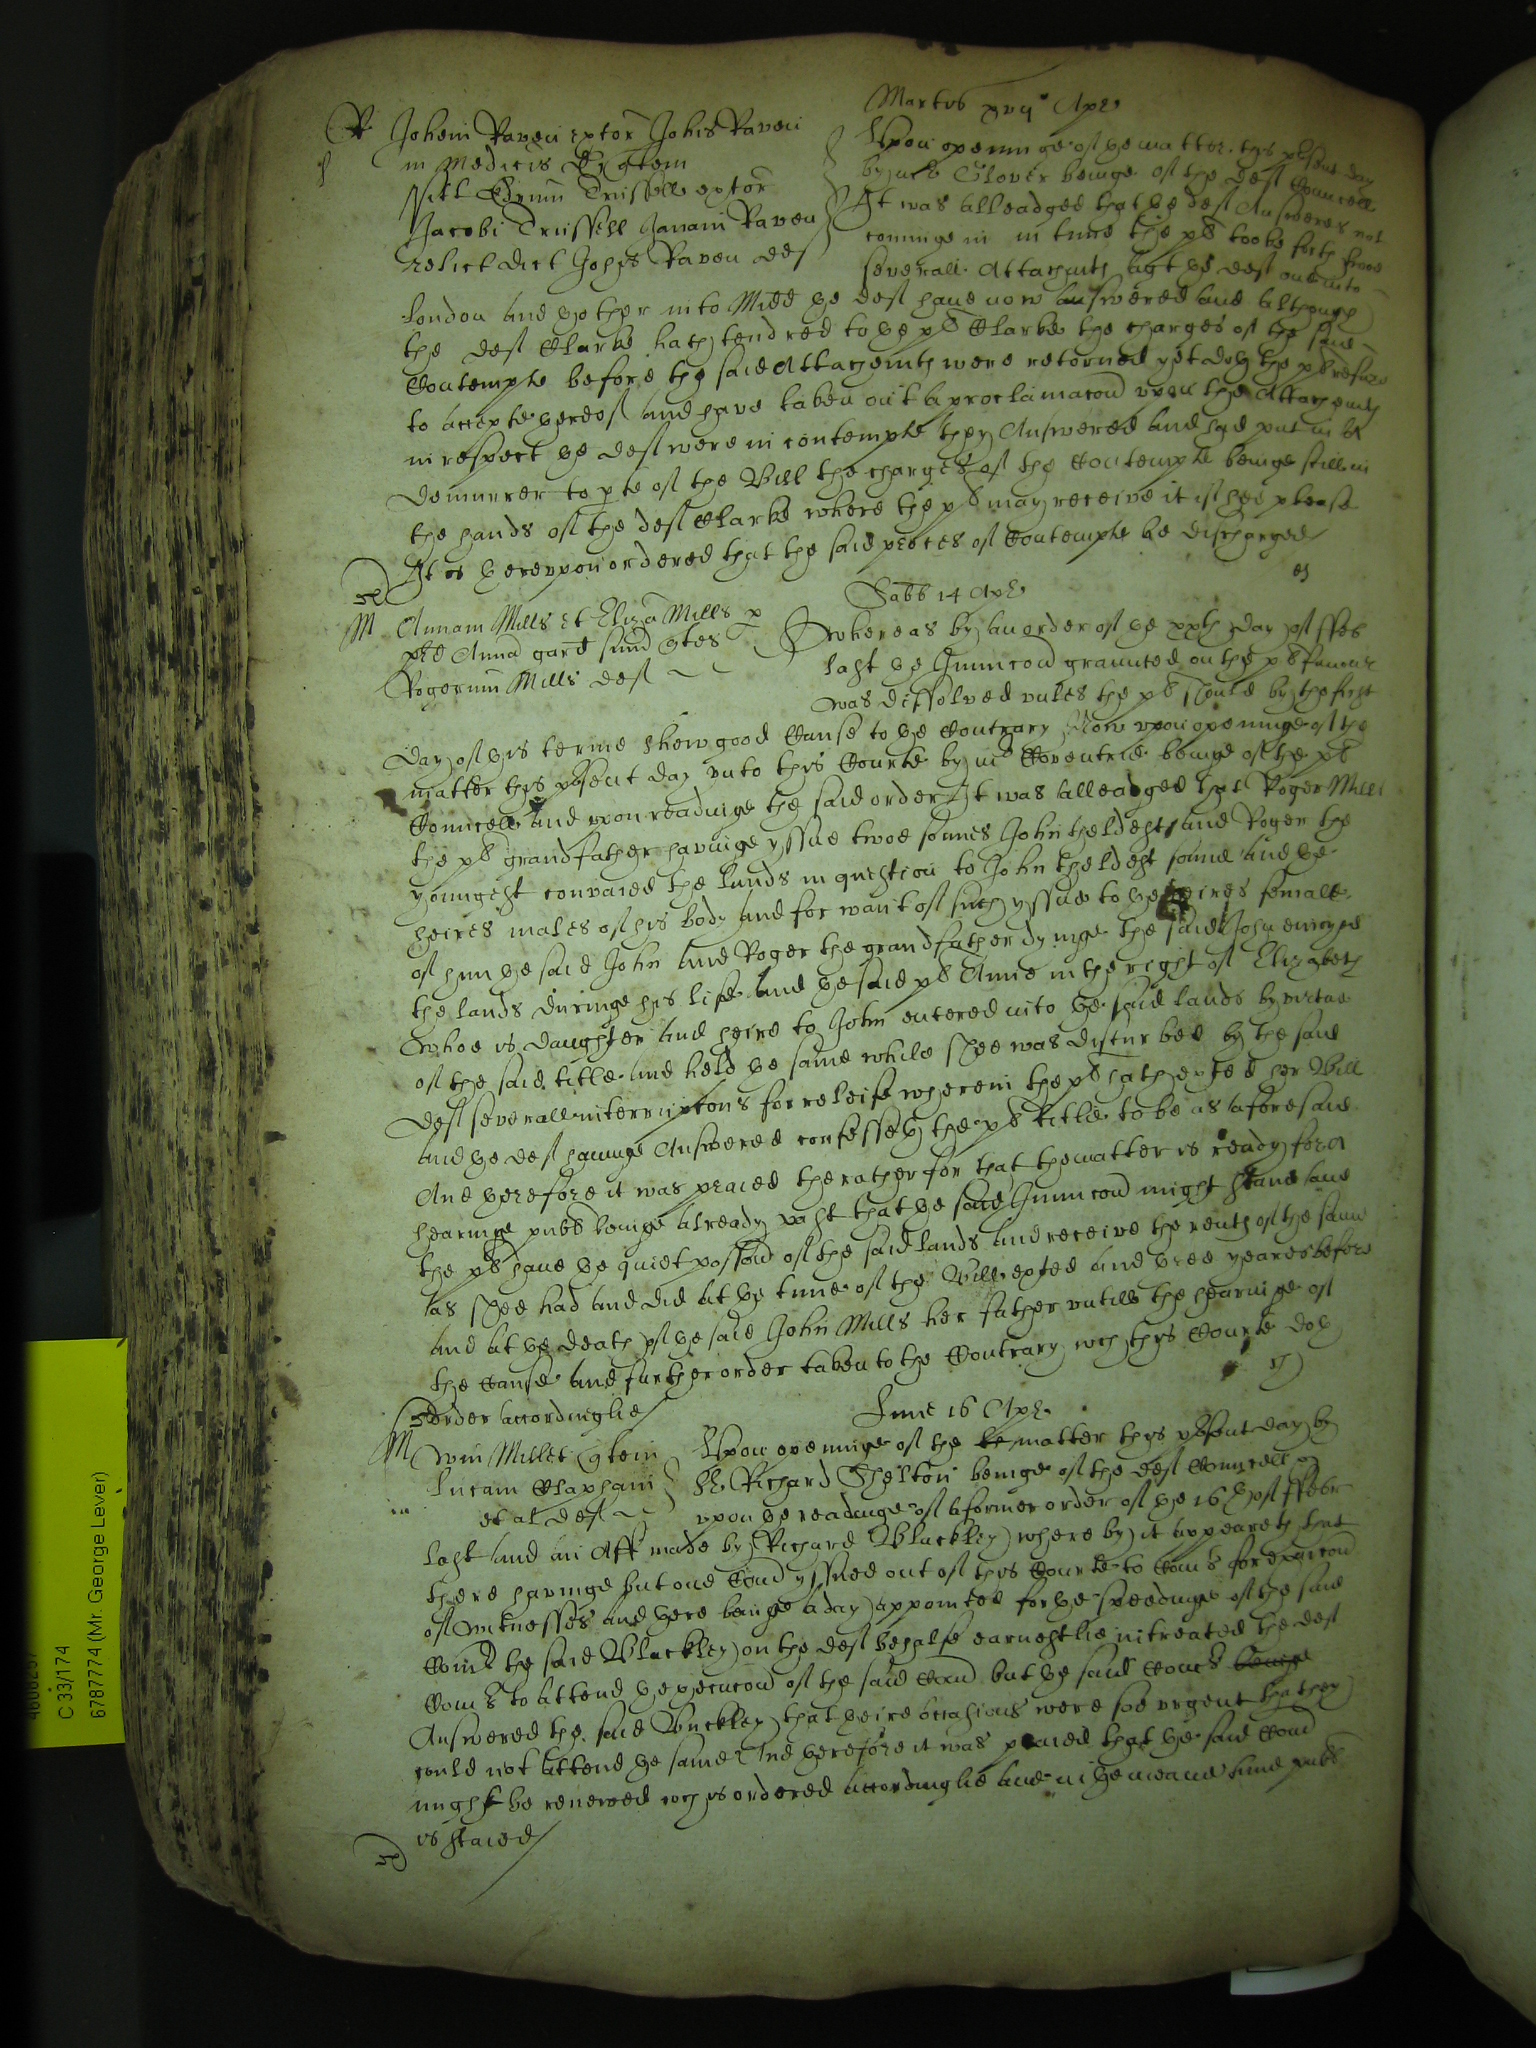 Martis xvij Apr.
R Johem Raven extor Johis Raven
in Medicis Dr qten
Edrum Trussell extor
Jacobi Trussell Janam Raven
relict dict Johis Raven def
Upon openinge of the matter this psent day
by mr Glover beinge of the def Councell
It was alleadged that the def Answeres not
cominge in in time the pl tooke forth
severall Attachmts agt the def one into
London and thother into Midd the def have now answered and although
the def Clarke hath tendred to the pl Clarke the charges of the said
Contempte before the said Attachemts were retorned yet doth the pl refuse
to accepte thereof and have taken out a proclamacon upon the Attachemts
in respect the def were in contempte they Answered and had put in a
Demurrer to pte of the Bill the charges of the Contempte beinge still in
the hands of the def Clarke where the pl may receive it if hee please
It is thereupon ordered that the said proces of Contempte be discharged
Sabb 14 Apr.
M Annam Mills et Eliza Mills p
pred Anna gard suum qtes
Rogerum Mills def
Whereas by an order of the xxth day of ffeb
last the Iniunccon graunted on the pl
was dissolved unles the pl should by the first
day of this terme shew good Cause to the Contrary Now upon openinge of the
matter this psent day unto this Courte by mr Coventrie beinge of the pl
Councell and upon readinge the said order It was alleadged that Roger Mills
the pl grandfather havinge yssue twoe sonnes John theldest and Roger the
youngest convaied the lands in question to John theldest sonne and the
heires males of his body and for want of such yssue to the heires female
of him the said John and Roger the grandfather dyinge the said John enioyed
the lands duringe his life and the said pl Anne in the right of Elizabeth
whoe is daughter and heire to John entered into the said lands by vertue
of the said title and held the same while shee was disturbed by the said
def severall interruptons for releife wherein the pl hath exted her Bill
and the def havinge Answered confesseth the pl title to be as aforesaid
And therefore it was praied the rather for that the matter is ready for a
hearinge pubs beinge already past that the said Iniunccon might stand and
the pl have the quiet possion of the said lands and receive the rents of the same
as shee had and did at the time of the Bill exted and three yeares before
and at the death of the said John Mills her father untill the hearinge of
the Cause and further order taken to the Contrary wch this Courte doth
order accordinglie
Lune 16 Apr.
M Wm Millet qten
Lucam Clapham
et al def
Upon openinge of the matter this psent day by
Sr Richard Shelton beinge of the def Councell
upon the readinge of a former order of the 16th of ffebr
last and an Aff made by Richard Blackley whereby it appeareth that
there havinge but one Comd yssued out of this Courte to Comrs for
of witnesses and there beinge a day appointed for the speedinge of the said
Comd the said Blackley on the def behalfe earnestlie intreated the def
Comrs to attend the execucon of the said Comd but the said Comrs
Answered the said Buckley that theire occasions were soe urgent that they
could not attend the same And therefore it was praied that the said Comd
might be renewed wch is ordered accordinglie and in the meane time pubs
is staied
C 33/174
6787774 (Mr. George Lever)